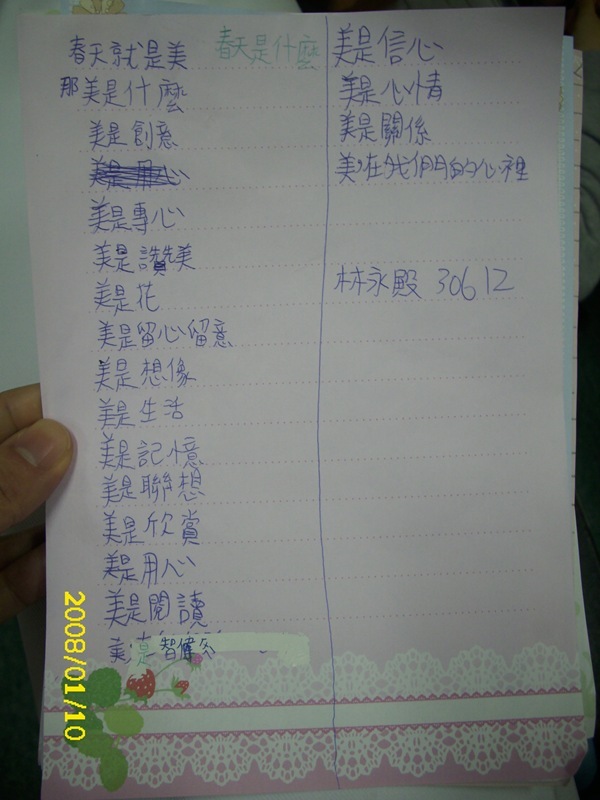 春天就是美
春天是什麼
那美是什麼
美是創意
美是用心
美是專心
美是讚美
美是花
美是留心留意
美是想像
美是生活
美是記憶
美是聯想
美是欣賞
美是用心
美是閱讀
美是智偉
美是信心
美是心情
美是關係
美在我們的心裡
林永殿 30612
2008/01/10